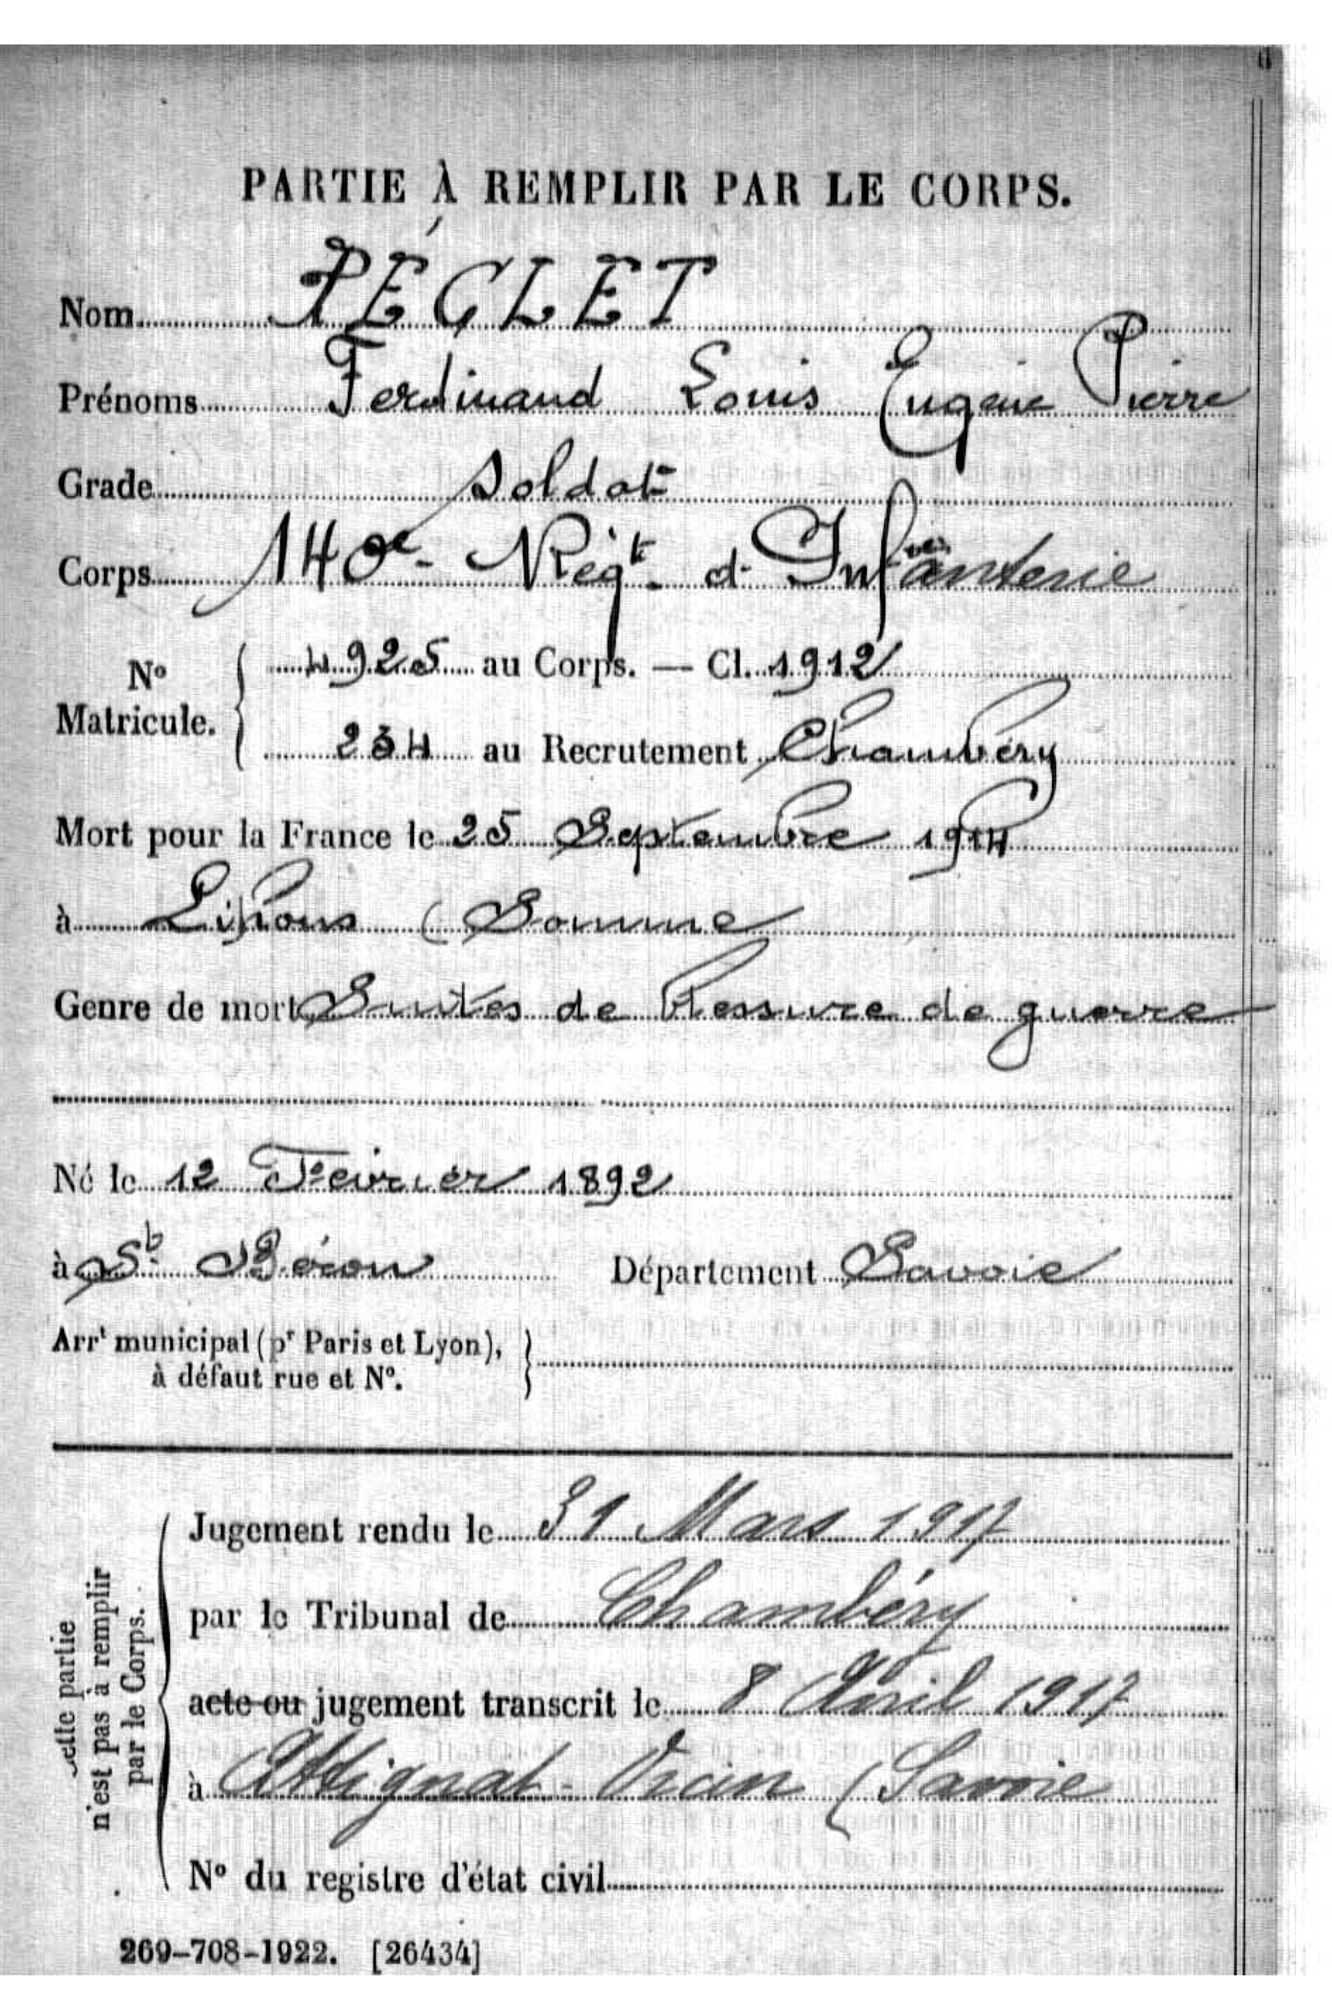 PARTIE À REMPLIR PAR LE CORPS.
Nom PÉCLET
Prénoms Ferdinand Louis Eugène Pierre
Grade soldat
Corps 140e Régt. d'Infanterie
No Matricule. { 4925 au Corps. — Cl. 1912
234 au Recrutement Chambéry
Mort pour la France le 25 Septembre 1914
à Lihons (Somme
Genre de mort Suites de blessure de guerre
Né le 12 Février 1892
à St. Béron Département Savoie
Arrt municipal (pr Paris et Lyon), }
à défaut rue et No.
Cette partie n'est pas à remplir par le Corps.
Jugement rendu le 31 Mars 1917
par le Tribunal de Chambéry
acte ou jugement transcrit le 8 Avril 1917
à Attignat-Oncin (Savoie
No du registre d'état civil
269-708-1922. [26434]